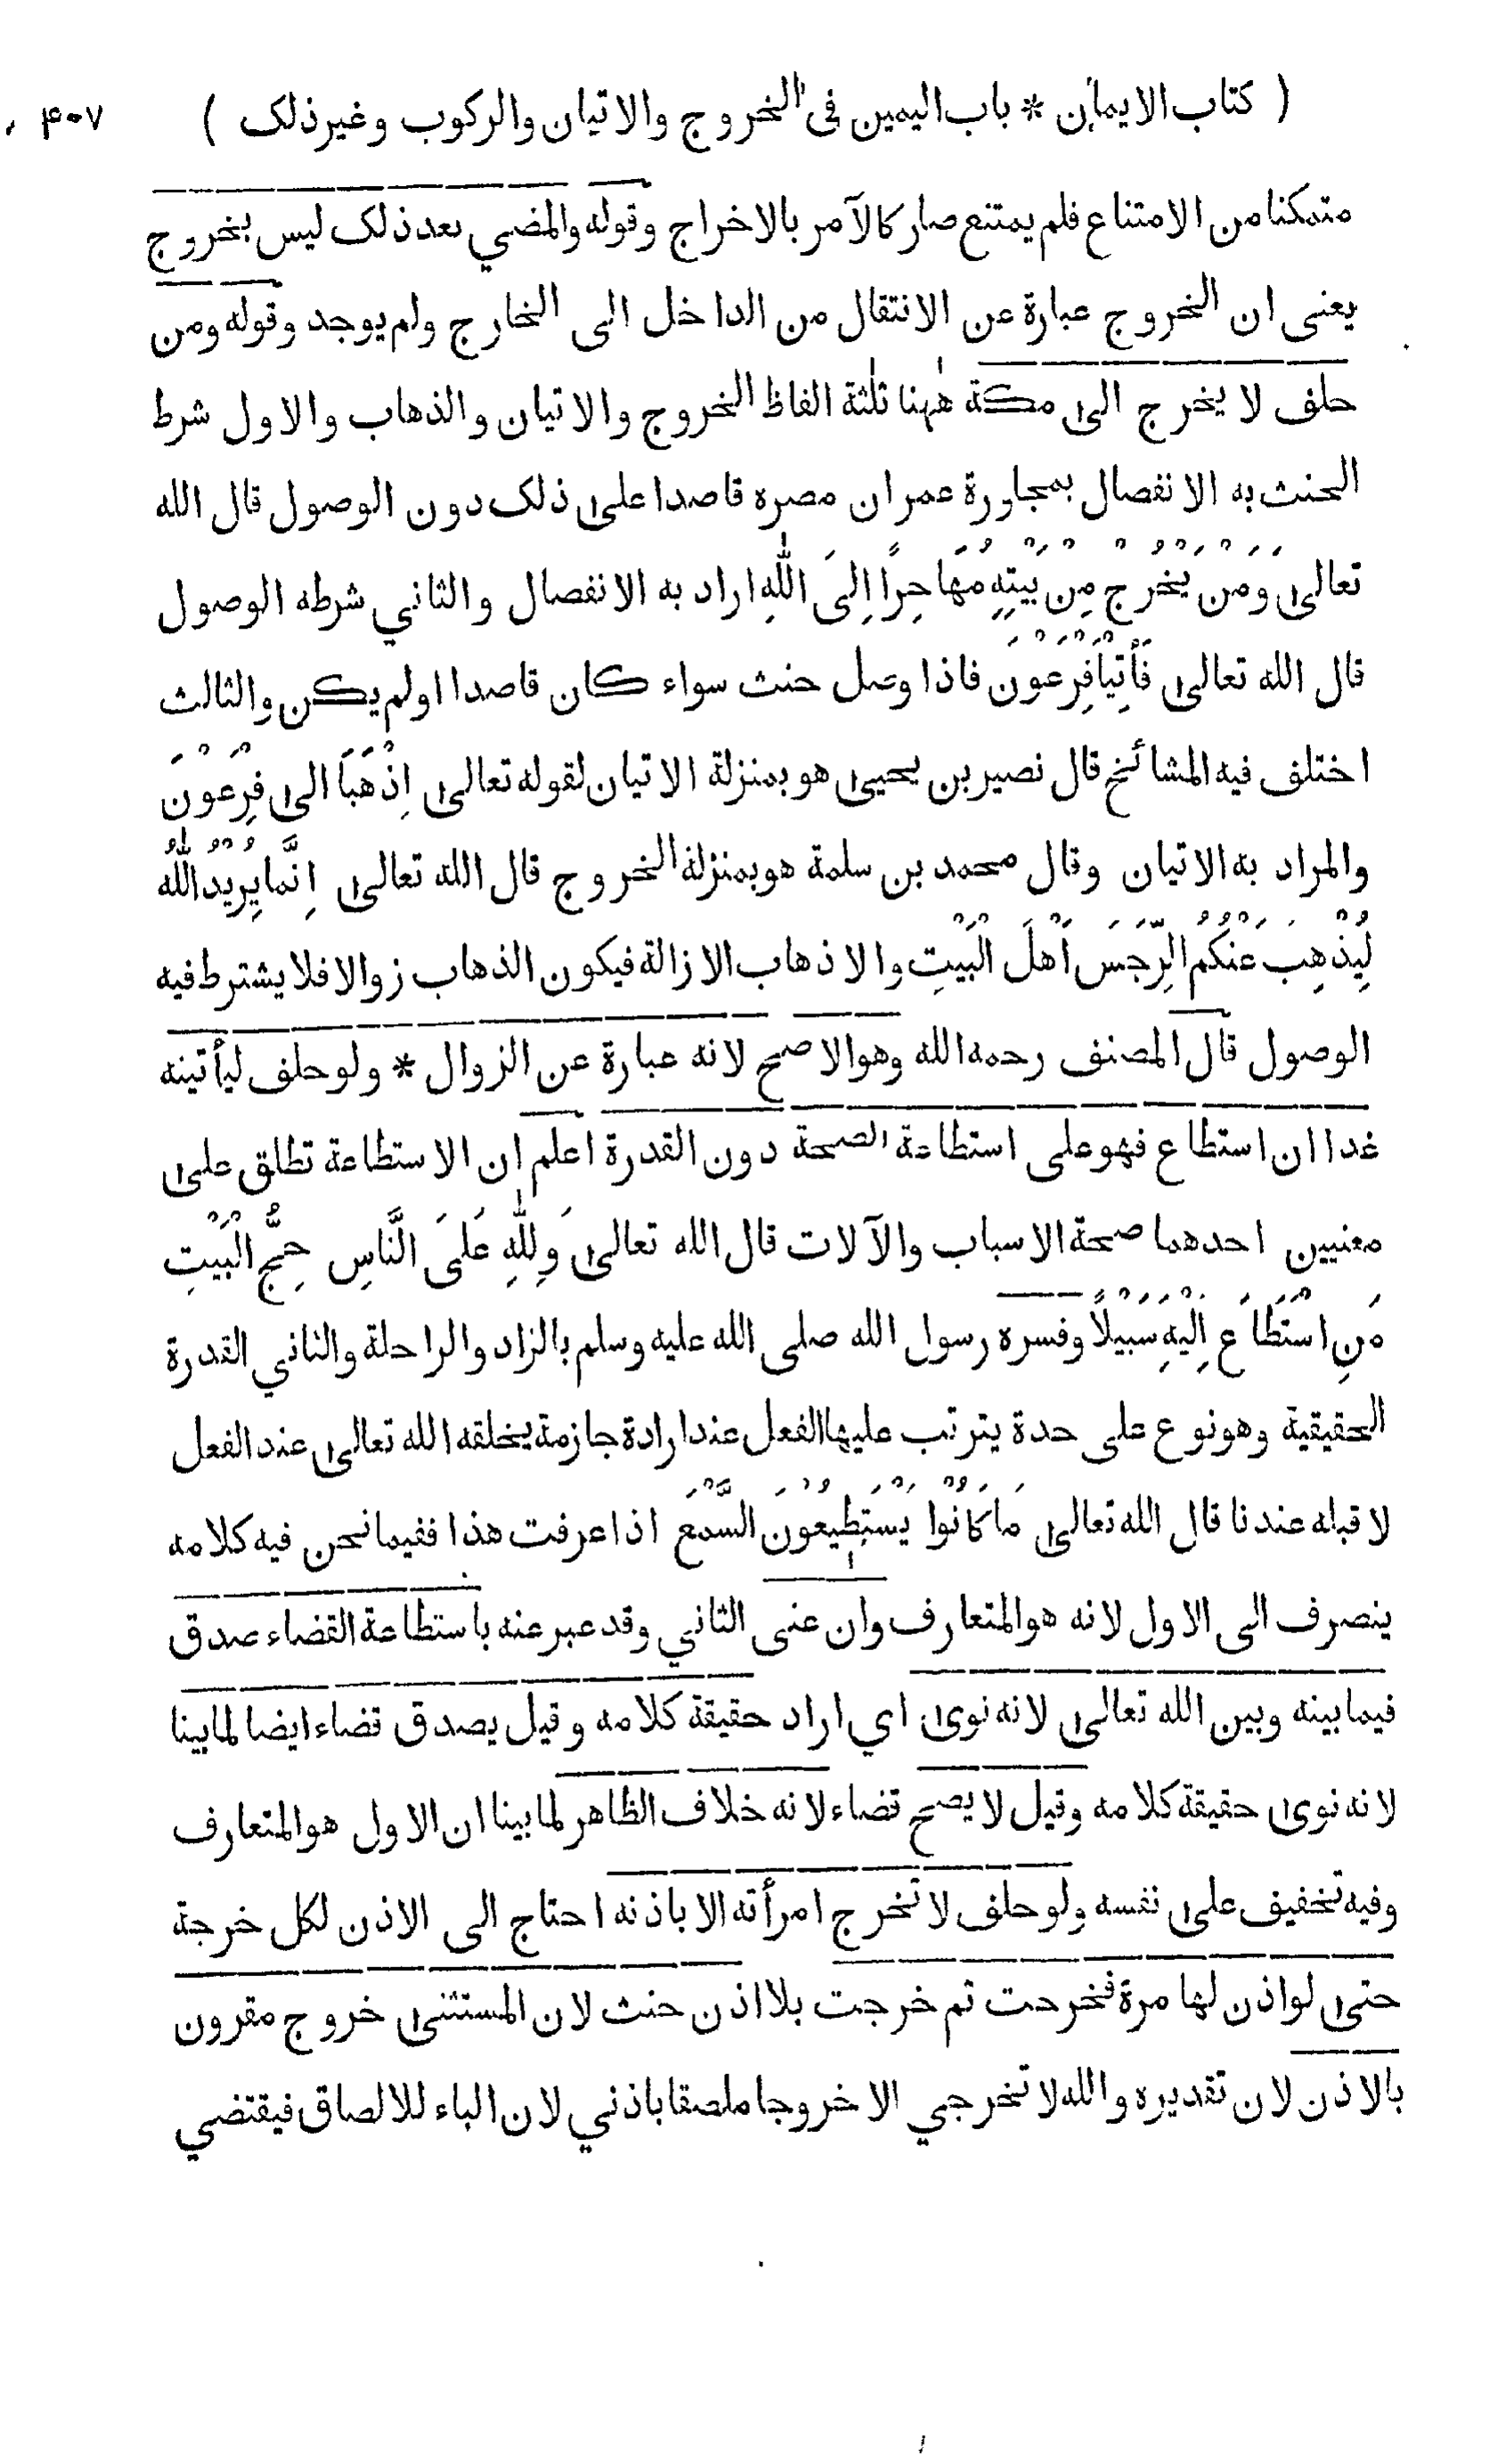 ( كتاب الايمان * باب اليمين فى الخروج والاتيان والركوب وغيرذلک ) ۴۰۷
متمكنا من الامتناع فلم يمتنع صار كالآمر بالاخراج وقوله والمضي بعد ذلک ليس بخروج
يعنى ان الخروج عبارة عن الانتقال من الداخل الى الخارج ولم يوجد وقوله ومن
حلف لا يخرج الى مكة هٰهنا ثلٰثة الفاظ الخروج والاتيان والذهاب والاول شرط
الحنث به الانفصال بمجاوزة عمران مصره قاصدا على ذلک دون الوصول قال الله
تعالى وَمَنْ يَخْرُجْ مِنْ بَيْتِهِ مُهَاجِرًا اِلَى اللّٰهِ اراد به الانفصال والثاني شرطه الوصول
قال الله تعالى فَأْتِيَا فِرْعَوْنَ فاذا وصل حنث سواء كان قاصدا اولم يكن والثالث
اختلف فيه المشائخ قال نصير بن يحيى هو بمنزلة الاتيان لقوله تعالى اِذْهَبَا الى فِرْعَوْنَ
والمراد به الاتيان وقال محمد بن سلمة هو بمنزلة الخروج قال الله تعالى اِنَّمَا يُرِيْدُ اللّٰهُ
لِيُذْهِبَ عَنْكُمُ الرِّجْسَ اَهْلَ الْبَيْتِ والاذهاب الازالة فيكون الذهاب زوالا فلا يشترط فيه
الوصول قال المصنف رحمه الله وهو الاصح لانه عبارة عن الزوال * ولو حلف ليأتينه
غدا ان استطاع فهو على استطاعة الصحة دون القدرة اعلم ان الاستطاعة تطلق على
معنيين احدهما صحة الاسباب والآلات قال الله تعالى وَلِلّٰهِ عَلَى النَّاسِ حِجُّ الْبَيْتِ
مَنِ اسْتَطَاعَ اِلَيْهِ سَبِيْلًا وفسره رسول الله صلى الله عليه وسلم بالزاد والراحلة والثاني القدرة
الحقيقية وهو نوع على حدة يترتب عليها الفعل عند ارادة جازمة يخلقه الله تعالى عند الفعل
لا قبله عندنا قال الله تعالى مَا كَانُوْا يَسْتَطِيْعُوْنَ السَّمْعَ اذا عرفت هذا ففيما نحن فيه كلامه
ينصرف الى الاول لانه هو المتعارف وان عنى الثاني وقد عبر عنه باستطاعة القضاء صدق
فيما بينه وبين الله تعالى لانه نوى اي اراد حقيقة كلامه وقيل يصدق قضاء ايضا لما بينا
لانه نوى حقيقة كلامه وقيل لا يصح قضاء لانه خلاف الظاهر لما بينا ان الاول هو المتعارف
وفيه تخفيف على نفسه ولو حلف لا تخرج امرأته الا باذنه احتاج الى الاذن لكل خرجة
حتى لو اذن لها مرة فخرجت ثم خرجت بلا اذن حنث لان المستثنى خروج مقرون
بالاذن لان تقديره والله لا تخرجي الا خروجا ملصقا باذني لان الباء للالصاق فيقتضي